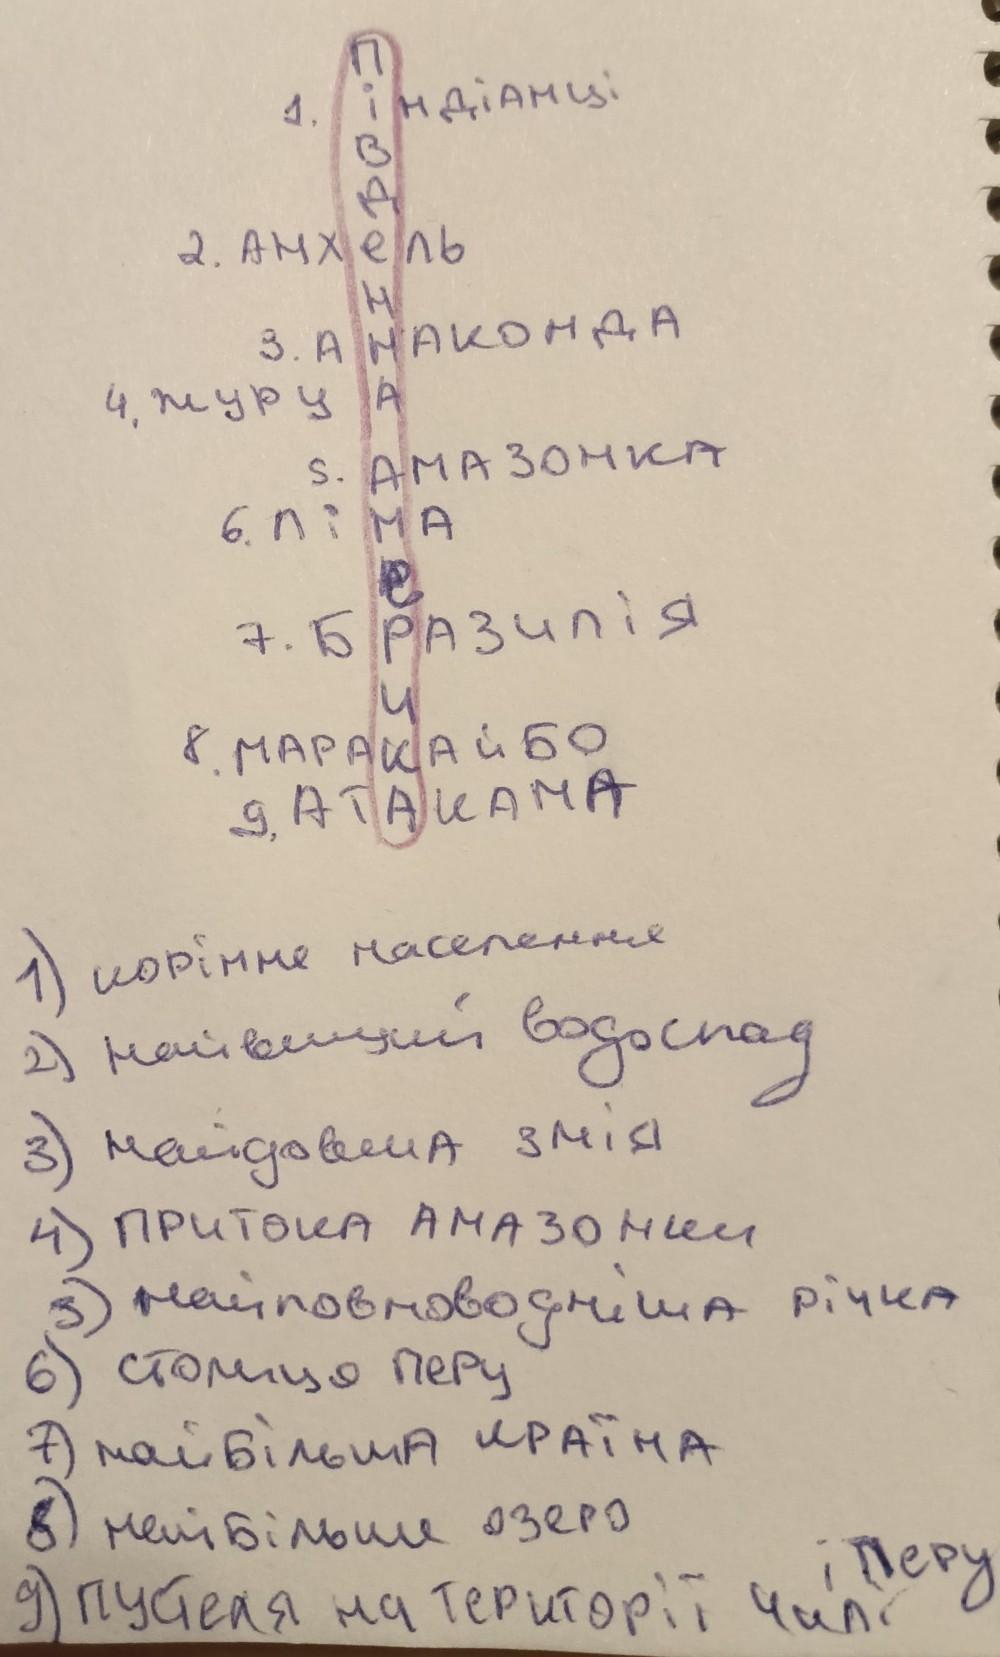 П
1. індіанці
В
Д
2. АНХеЛЬ
Н
3. АНАКОНДА
4. ЖУРУА
5. АМАЗОНКА
6. ЛіМА
е
7. БРАЗИЛіЯ
И
8. МАРАКАЙБО
9. АТАКАМА
1) корінне населення
2) найвищий водоспад
3) найдовша змія
4) ПРИТОКА АМАЗОНКИ
5) найповноводніша річка
6) столиця Перу
7) найбільша країна
8) найбільше озеро
9) пустеля на території Чилі і Перу